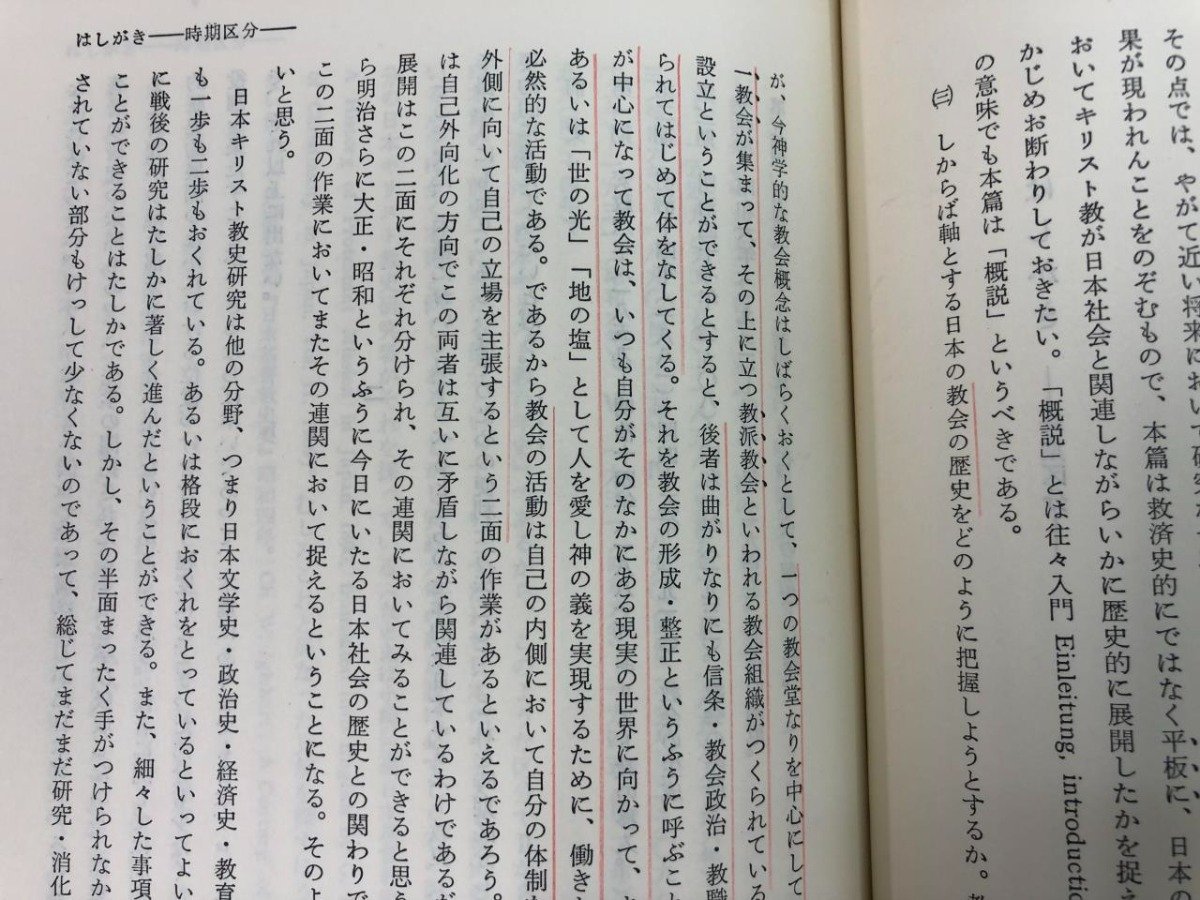 その点では、やがて近い将来において研究
果が現われんことをのぞむもので、本篇は救済史的にではなく平板に、日本の
おいてキリスト教が日本社会と関連しながらいかに歴史的に展開したかを捉え
かじめお断わりしておきたい。「概説」とは往々入門 Einleitung, introductio
の意味でも本篇は「概説」というべきである。
㈢ しからば軸とする日本の教会の歴史をどのように把握しようとするか。教
はしがき――時期区分――
が、今神学的な教会概念はしばらくおくとして、一つの教会堂なりを中心にして
一教会が集まって、その上に立つ教派教会といわれる教会組織がつくられている
設立ということができるとすると、後者は曲がりなりにも信条・教会政治・教職
られてはじめて体をなしてくる。それを教会の形成・整正というふうに呼ぶこと
が中心になって教会は、いつも自分がそのなかにある現実の世界に向かって、
あるいは「世の光」「地の塩」として人を愛し神の義を実現するために、働き
必然的な活動である。であるから教会の活動は自己の内側において自分の体制
外側に向いて自己の立場を主張するという二面の作業があるといえるであろう。
は自己外向化の方向でこの両者は互いに矛盾しながら関連しているわけであるが
展開はこの二面にそれぞれ分けられ、その連関においてみることができると思う
ら明治さらに大正・昭和というふうに今日にいたる日本社会の歴史との関わりで
この二面の作業においてまたその連関において捉えるということになる。そのよ
いと思う。
日本キリスト教史研究は他の分野、つまり日本文学史・政治史・経済史・教育
も一歩も二歩もおくれている。あるいは格段におくれをとっているといってよい
に戦後の研究はたしかに著しく進んだということができる。また、細々した事項
ことができることはたしかである。しかし、その半面まったく手がつけられなか
されていない部分もけっして少なくないのであって、総じてまだまだ研究・消化